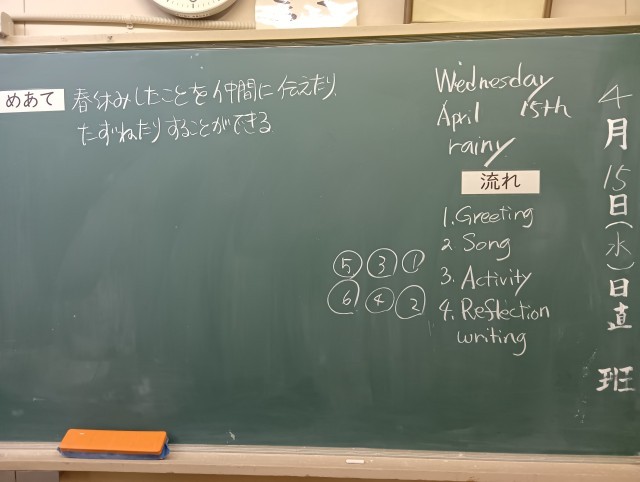 めあて 春休みしたことを仲間に伝えたり、
たずねたりすることができる
Wednesday
April 15th
rainy
流れ
1. Greeting
2 Song
3. Activity
4. Reflection
writing
⑤ ③ ①
⑥ ④ ②
4月15日(水)日直 班